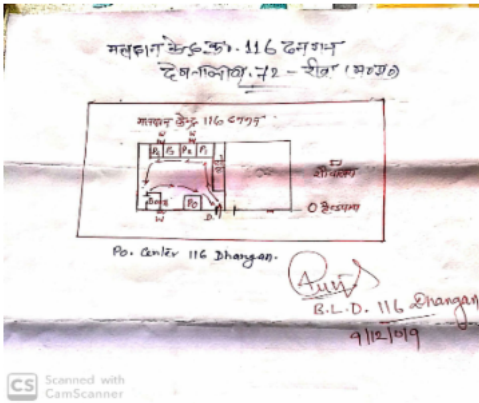 मतदान केन्द्र क्र. 116 ढनगन
72 - रीवा (म०प्र०)
मतदान केन्द्र 116 ढनगन
W W
P3 P2 P1
शौचालय
Booth PO
W D.
O हैण्डपम्प
Po. Center 116 Dhangan.
B.L.O. 116 Dhangan
9/12/019
CS Scanned with
CamScanner